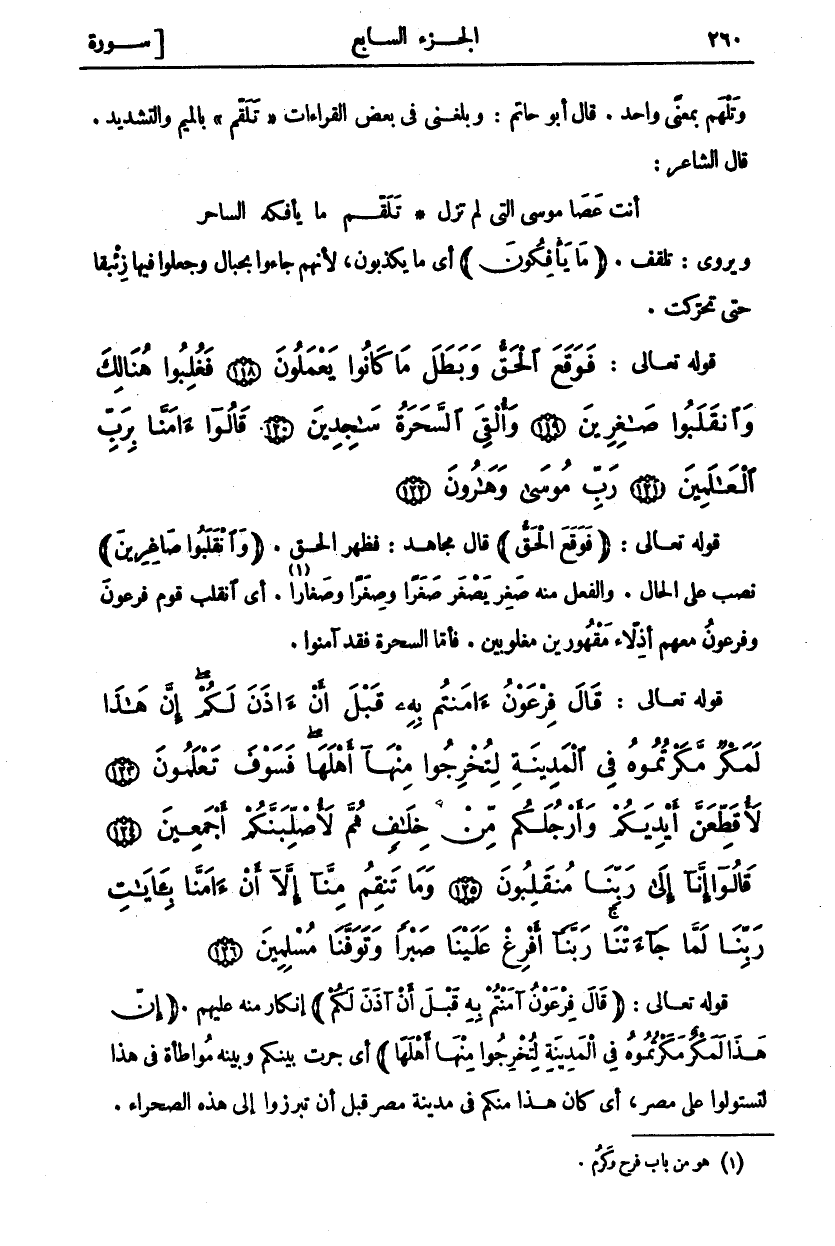 ٢٦٠ الجزء السابع [ سورة
وَتَلْهَم بمعنًى واحد . قال أبو حاتم : وبلغنى فى بعض القراءات « تَلَقَّم » بالميم والتشديد .
قال الشاعر :
أنت عَصَا موسى التى لم تزل * تَلَقَّـم ما يأفكه الساحر
ويروى : تلقف . ﴿ مَا يَأْفِكُونَ ﴾ أى ما يكذبون، لأنهم جاءوا بحبال وجعلوا فيها زِئْبقا
حتى تحرّكت .
قوله تعالى : فَوَقَعَ ٱلْحَقُّ وَبَطَلَ مَا كَانُوا يَعْمَلُونَ ١١٨ فَغُلِبُوا هُنَالِكَ
وَٱنقَلَبُوا صَـٰغِرِينَ ١١٩ وَأُلْقِىَ ٱلسَّحَرَةُ سَـٰجِدِينَ ١٢٠ قَالُوٓا ءَامَنَّا بِرَبِّ
ٱلْعَـٰلَمِينَ ١٢١ رَبِّ مُوسَىٰ وَهَـٰرُونَ ١٢٢
قوله تعالى : ﴿ فَوَقَعَ الْحَقُّ ﴾ قال مجاهد : فظهر الحق . ﴿ وَٱنْقَلَبُوا صَاغِرِينَ ﴾
نصب على الحال . والفعل منه صَغِر يَصْغَر صَغَرًا وصِغَرًا وصَغارا (١) . أى ٱنقلب قوم فرعونَ
وفرعونُ معهم أذِلّاء مَقْهُورين مغلوبين . فأمّا السحرة فقد آمنوا .
قوله تعالى : قَالَ فِرْعَوْنُ ءَامَنتُم بِهِۦ قَبْلَ أَنْ ءَاذَنَ لَكُمْ ۖ إِنَّ هَـٰذَا
لَمَكْرٌ مَّكَرْتُمُوهُ فِى ٱلْمَدِينَةِ لِتُخْرِجُوا مِنْهَآ أَهْلَهَا ۖ فَسَوْفَ تَعْلَمُونَ ١٢٣
لَأُقَطِّعَنَّ أَيْدِيَكُمْ وَأَرْجُلَكُم مِّنْ خِلَـٰفٍ ثُمَّ لَأُصَلِّبَنَّكُمْ أَجْمَعِينَ ١٢٤
قَالُوٓا إِنَّآ إِلَىٰ رَبِّنَـا مُنقَلِبُونَ ١٢٥ وَمَا تَنقِمُ مِنَّآ إِلَّآ أَنْ ءَامَنَّا بِـَٔايَـٰتِ
رَبِّنَـا لَمَّا جَآءَتْنَا ۚ رَبَّنَآ أَفْرِغْ عَلَيْنَا صَبْرًا وَتَوَفَّنَا مُسْلِمِينَ ١٢٦
قوله تعالى : ﴿ قَالَ فِرْعَوْنُ آمَنْتُمْ بِهِ قَبْلَ أَنْ آذَنَ لَكُمْ ﴾ إنكار منه عليهم . ﴿ إِنّ
هَـذَا لَمَكْرٌ مَكَرْتُمُوهُ فِى الْمَدِينَةِ لِتُخْرِجُوا مِنْهَـا أَهْلَهَا ﴾ أى جرت بينكم وبينه مُواطأة فى هذا
لتستولوا على مصر، أى كان هـذا منكم فى مدينة مصر قبل أن تبرزوا إلى هذه الصحراء .
(١) هو من باب فرح وكَرُم .